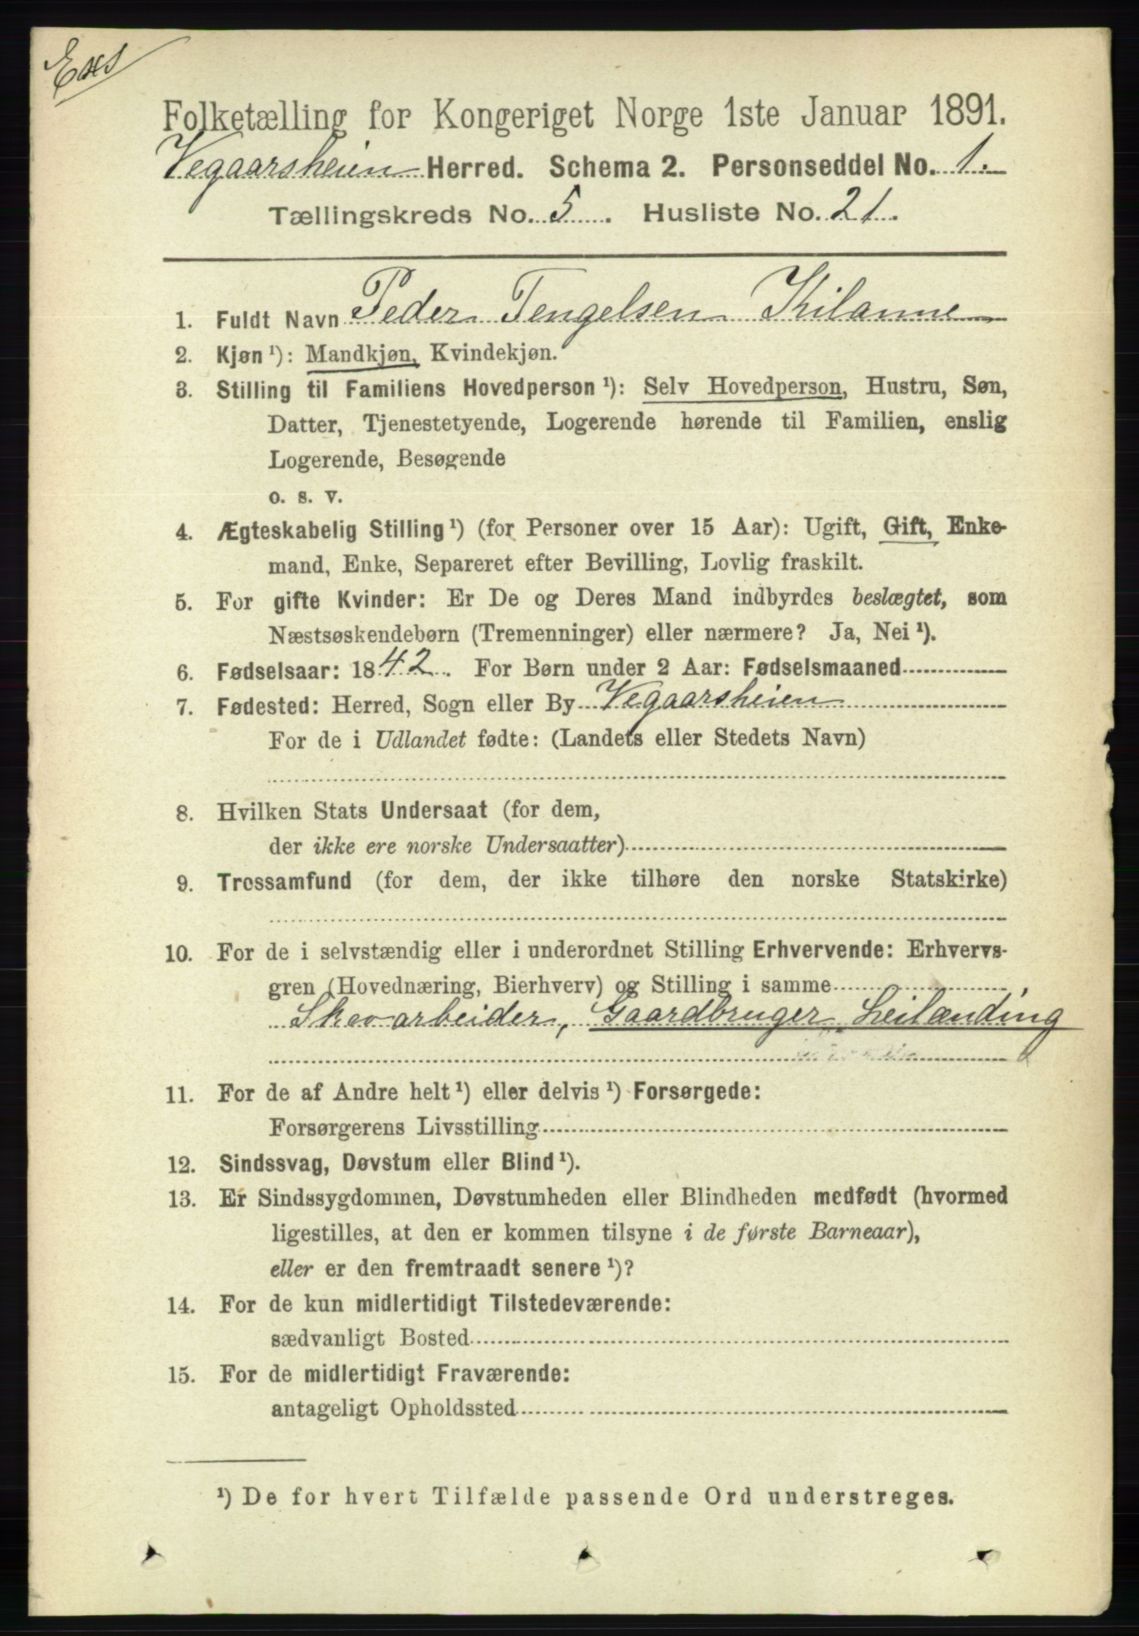 Folketælling for Kongeriget Norge 1ste Januar 1891.
Vegaarsheien Herred. Schema 2. Personseddel No. 1.
Tællingskreds No. 5. Husliste No. 21.
1. Fuldt Navn Peder Tengelsen Kilanne
2. Kjøn ¹): Mandkjøn, Kvindekjøn.
3. Stilling til Familiens Hovedperson ¹): Selv Hovedperson, Hustru, Søn,
Datter, Tjenestetyende, Logerende hørende til Familien, enslig
Logerende, Besøgende
o. s. v.
4. Ægteskabelig Stilling ¹) (for Personer over 15 Aar): Ugift, Gift, Enke-
mand, Enke, Separeret efter Bevilling, Lovlig fraskilt.
5. For gifte Kvinder: Er De og Deres Mand indbyrdes beslægtet, som
Næstsøskendebørn (Tremenninger) eller nærmere? Ja, Nei ¹).
6. Fødselsaar: 1842. For Børn under 2 Aar: Fødselsmaaned
7. Fødested: Herred, Sogn eller By Vegaarsheien
For de i Udlandet fødte: (Landets eller Stedets Navn)
8. Hvilken Stats Undersaat (for dem,
der ikke ere norske Undersaatter)
9. Trossamfund (for dem, der ikke tilhøre den norske Statskirke)
10. For de i selvstændig eller i underordnet Stilling Erhvervende: Erhvervs-
gren (Hovednæring, Bierhverv) og Stilling i samme
Skovarbeider, Gaardbruger Leilænding
11. For de af Andre helt ¹) eller delvis ¹) Forsørgede:
Forsørgerens Livsstilling
12. Sindssvag, Døvstum eller Blind ¹).
13. Er Sindssygdommen, Døvstumheden eller Blindheden medfødt (hvormed
ligestilles, at den er kommen tilsyne i de første Barneaar),
eller er den fremtraadt senere ¹)?
14. For de kun midlertidigt Tilstedeværende:
sædvanligt Bosted
15. For de midlertidigt Fraværende:
antageligt Opholdssted
¹) De for hvert Tilfælde passende Ord understreges.